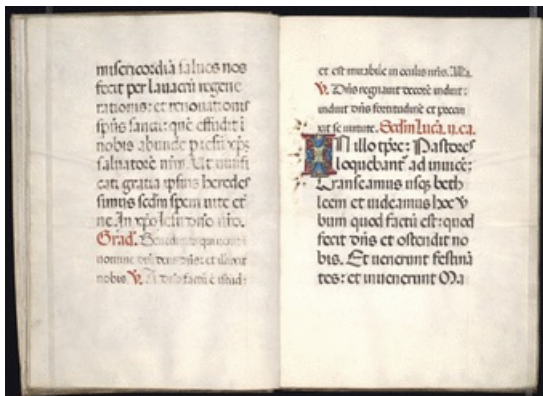 misericordiā saluos nos
fecit per lauacrū regene
rationis: et renouationis
spūs sancti: quē effudit ī
nobis abunde p iesū xp̄m
saluatorē nr̄m. Ut iustifi
cati gratia ipsius heredes
simus scdm spem uite et̄
ne. In xp̄o iesu dn̄o nr̄o.
Grad. Benedictus qui uenit ī
nomine dn̄i deus dn̄s: et illuxit
nobis. V. A dn̄o factū ē istud:
et est mirabile in oculis nr̄is. Alla.
V. Dn̄s regnauit decorē induit:
induit dn̄s fortitudinē et precin
xit se uirtute. Scdm Lucā. ij. ca.
IN illo tp̄re: Pastores
loquebant᷑ ad inuicē:
Transeamus usq̨ beth
leem et uideamus hoc v
bum quod factū est: quod
fecit dn̄s et ostendit no
bis. Et uenerunt festinā
tes: et inuenerunt Ma